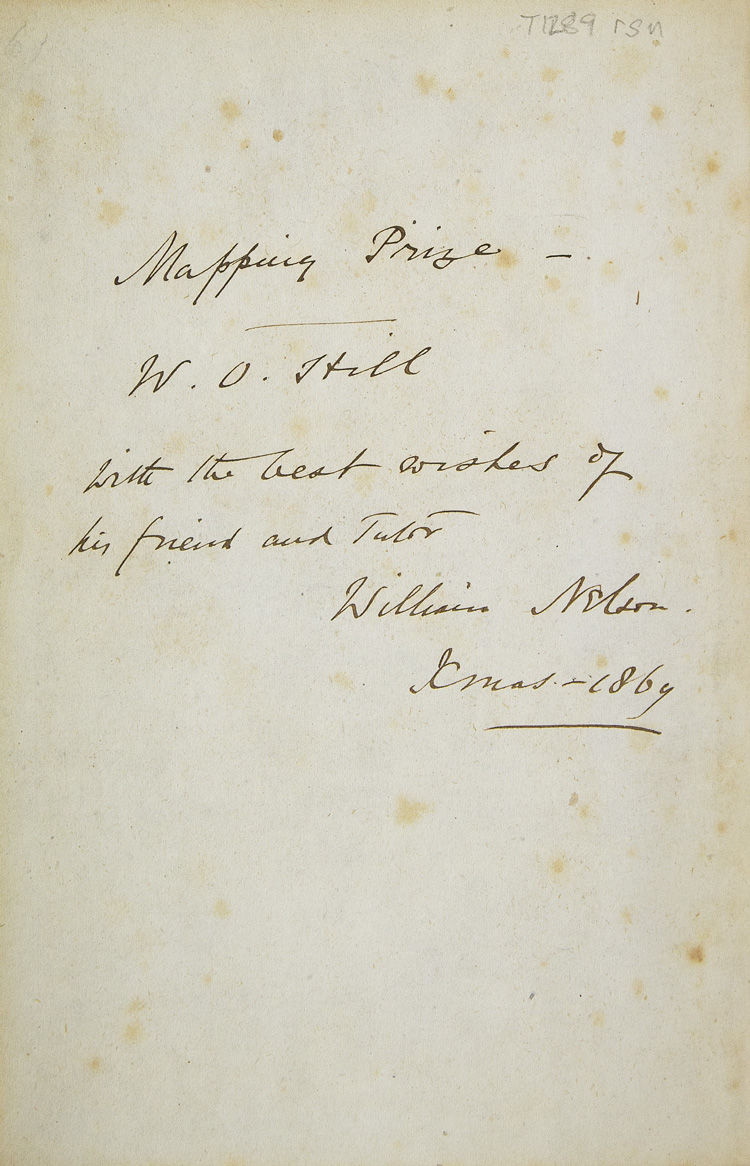 T1289 rsn
Mapping Prize –
W. O. Hill
With the best wishes of
his friend and Tutor
William Nelson.
Xmas – 1869